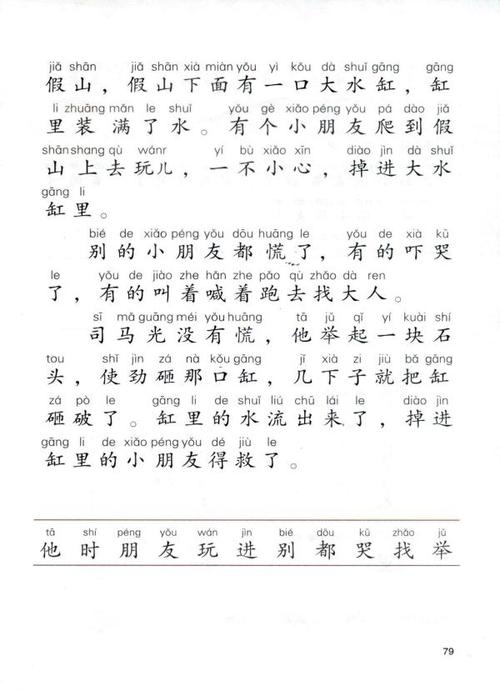 jiǎ shān jiǎ shān xià miàn yǒu yì kǒu dà shuǐ gāng gāng
假山，假山下面有一口大水缸，缸
li zhuāng mǎn le shuǐ yǒu gè xiǎo péng yǒu pá dào jiǎ
里装满了水。有个小朋友爬到假
shān shang qù wánr yí bù xiǎo xīn diào jìn dà shuǐ
山上去玩儿，一不小心，掉进大水
gāng li
缸里。
bié de xiǎo péng yǒu dōu huāng le yǒu de xià kū
别的小朋友都慌了，有的吓哭
le yǒu de jiào zhe hǎn zhe pǎo qù zhǎo dà ren
了，有的叫着喊着跑去找大人。
sī mǎ guāng méi yǒu huāng tā jǔ qǐ yí kuài shí
司马光没有慌，他举起一块石
tou shǐ jìn zá nà kǒu gāng jǐ xià zi jiù bǎ gāng
头，使劲砸那口缸，几下子就把缸
zá pò le gāng li de shuǐ liú chū lái le diào jìn
砸破了。缸里的水流出来了，掉进
gāng li de xiǎo péng yǒu dé jiù le
缸里的小朋友得救了。
tā shí péng yǒu wán jìn bié dōu kū zhǎo jǔ
他时朋友玩进别都哭找举
79